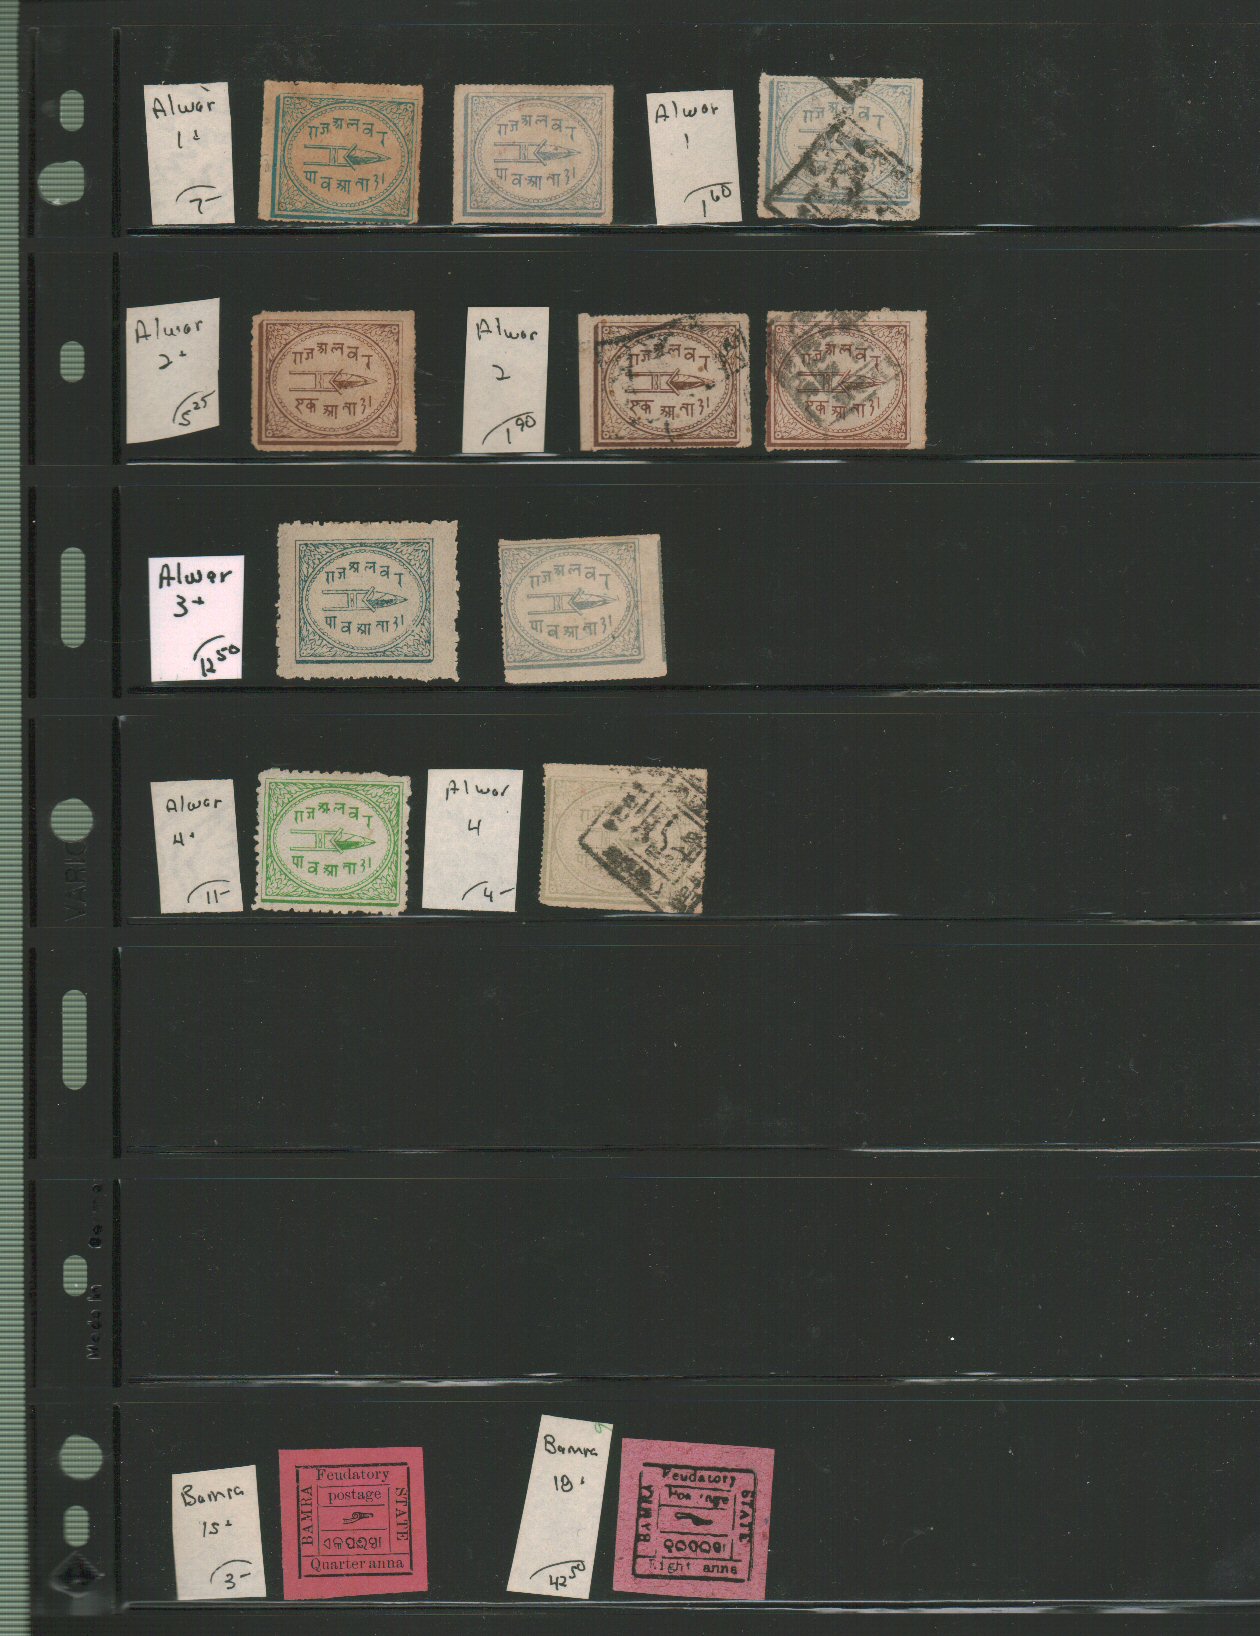 Alwar
1+
7-
राज अलवर
पाव आना ३।
राज अलवर
पाव आना ३।
Alwar
1
1 60
राज अलवर
Alwar
2+
5 25
राज अलवर
एक आना ३।
Alwar
2
1 90
राज अलवर
एक आना ३।
राज अलवर
एक आना ३।
Alwar
3+
12 50
राज अलवर
पाव आना ३।
राज अलवर
पाव आना ३।
Alwar
4+
11-
राज अलवर
पाव आना ३।
Alwar
4
4-
VARIO
Made in
Bamra
15+
3-
Feudatory
BAMRA
postage
STATE
Quarter anna
Bamra
18+
42 50
Feudatory
BAMRA
STATE
Eight anna